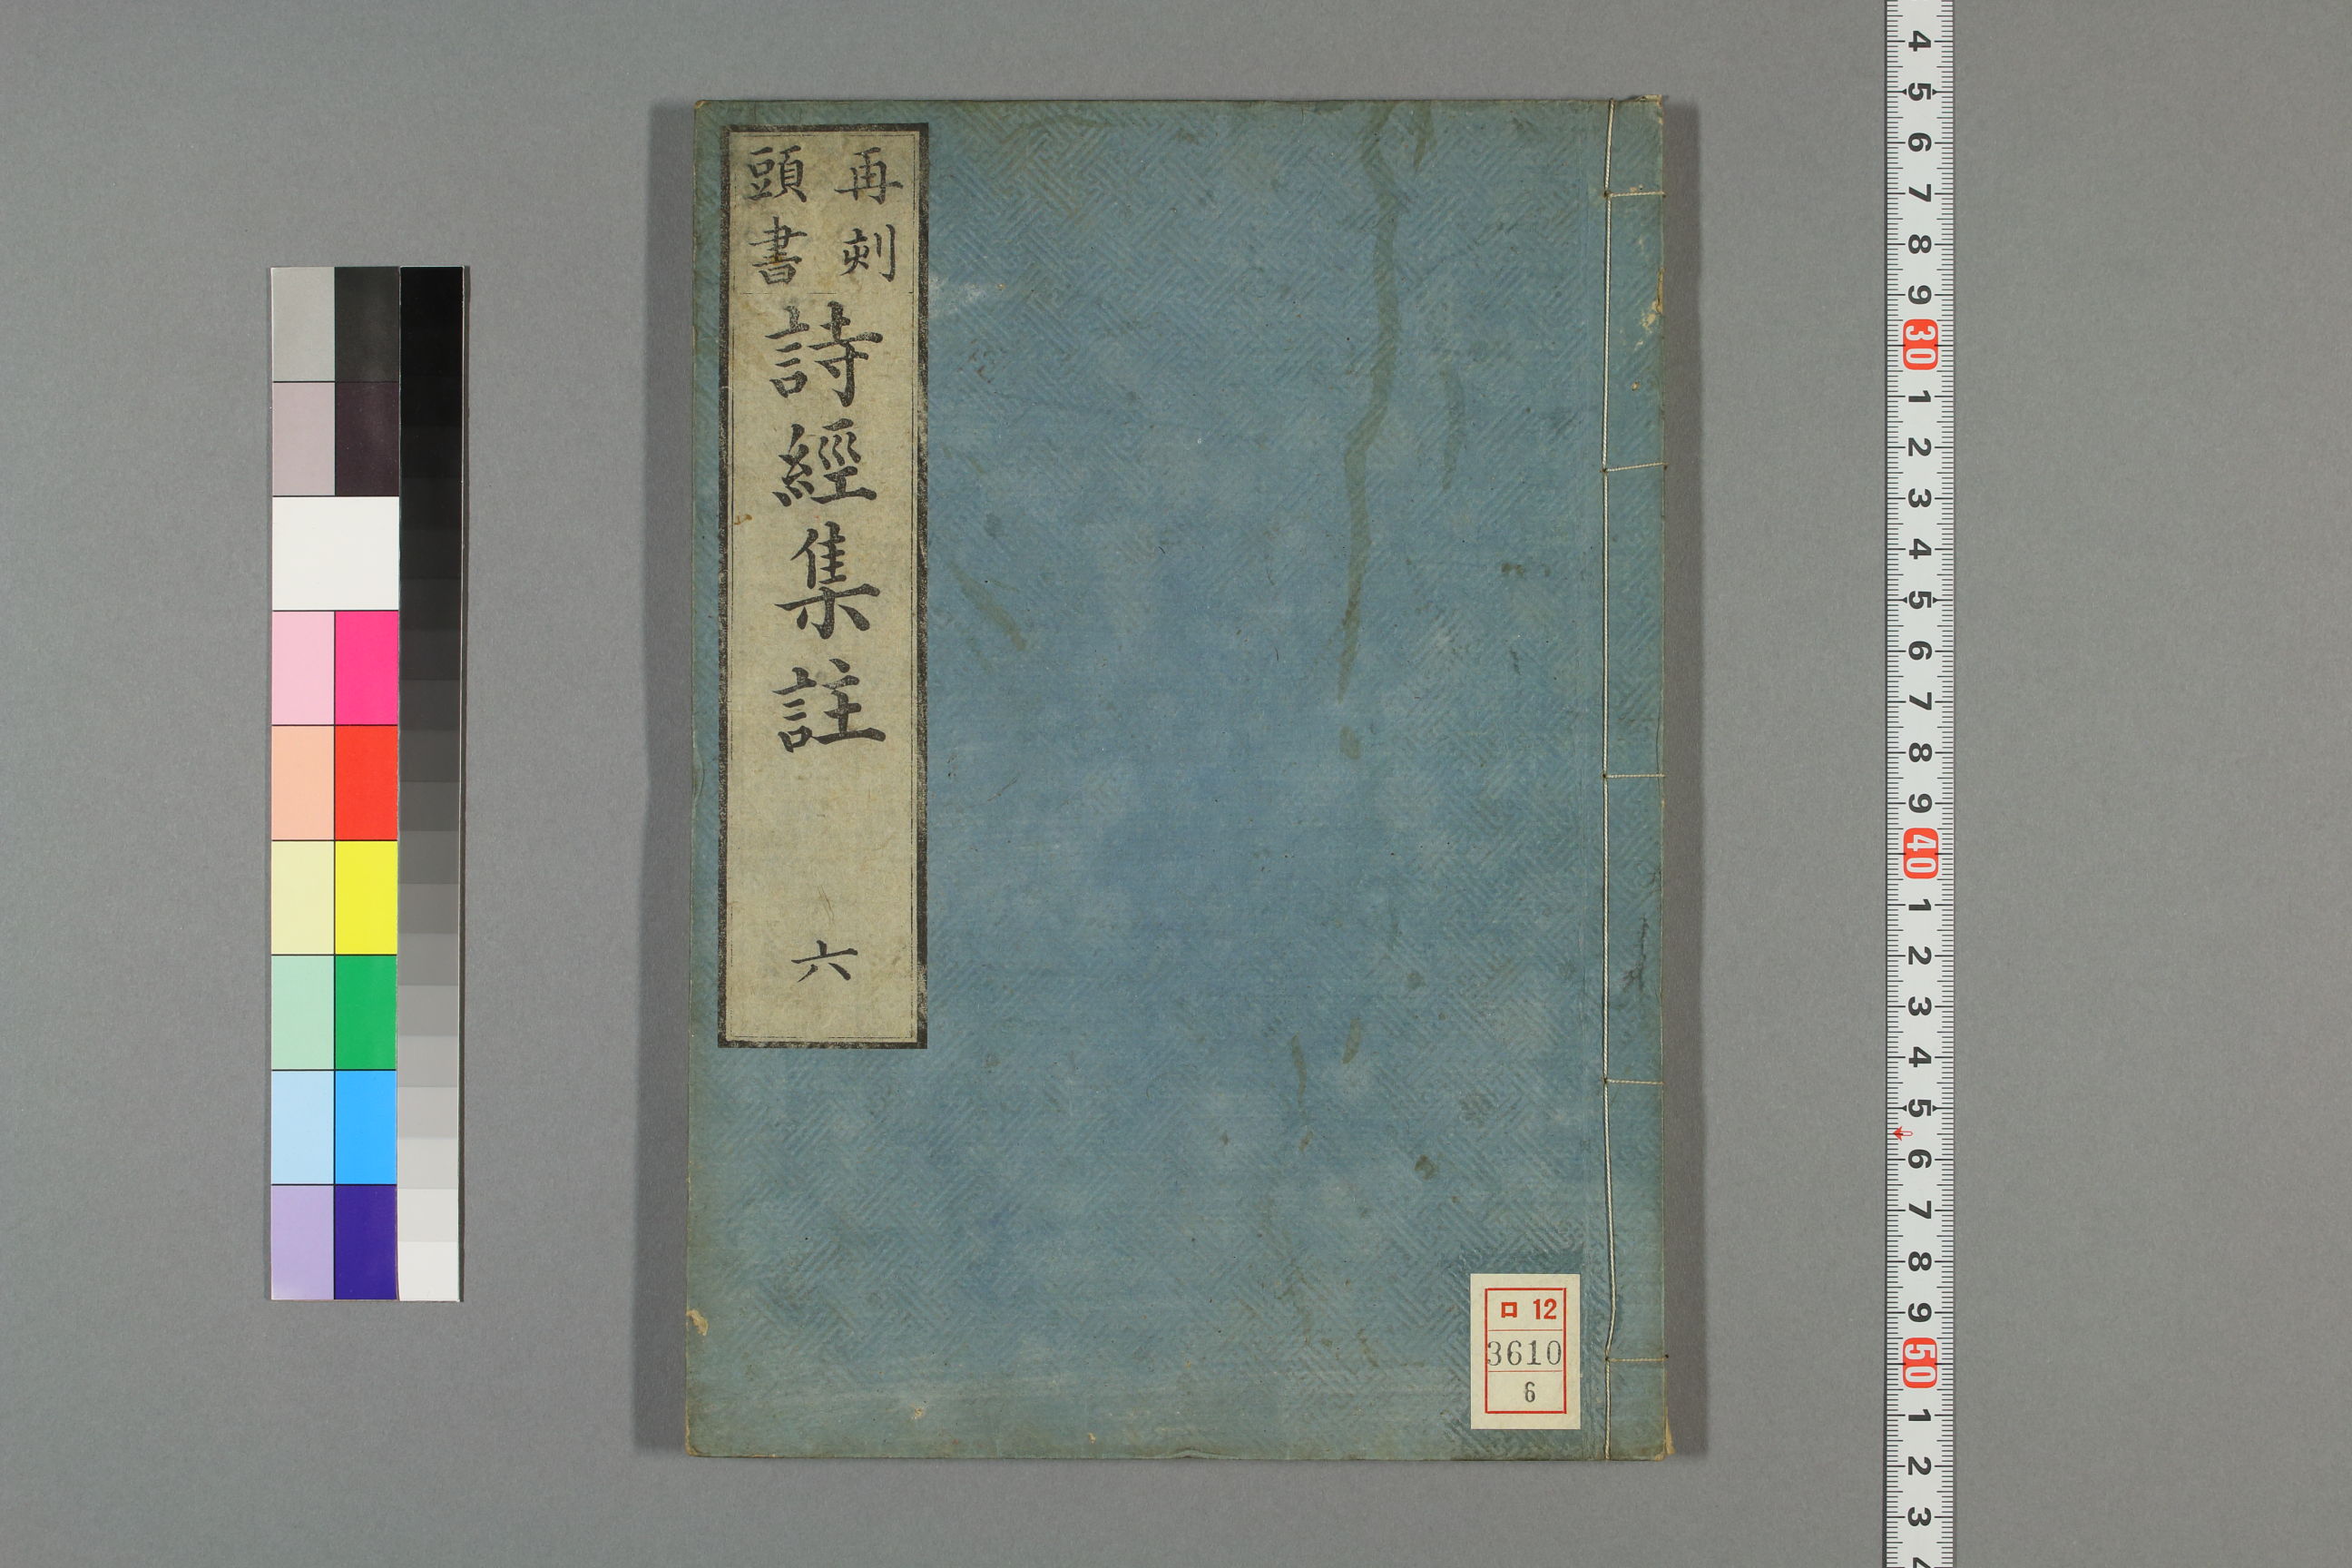 再刻
頭書
詩經集註
六
ロ 12
3610
6
4
5
6
7
8
9
30
1
2
3
4
5
6
7
8
9
40
1
2
3
4
5
6
7
8
9
50
1
2
3